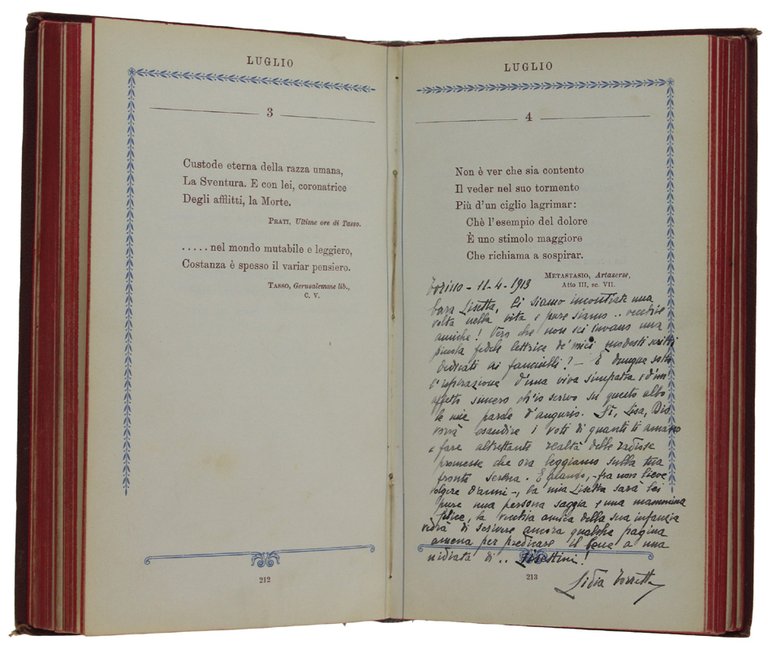 LUGLIO
3
Custode eterna della razza umana,
La Sventura. E con lei, coronatrice
Degli afflitti, la Morte.
PRATI, Ultime ore di Tasso.
..... nel mondo mutabile e leggiero,
Costanza è spesso il variar pensiero.
TASSO, Gerusalemme lib.,
C. V.
212
LUGLIO
4
Non è ver che sia contento
Il veder nel suo tormento
Più d'un ciglio lagrimar:
Chè l'esempio del dolore
È uno stimolo maggiore
Che richiama a sospirar.
METASTASIO, Artaserse,
Atto III, sc. VII.
Torino - 11-4-1913
Cara Lisetta, Ci siamo incontrate una
volta nella vita e pure siamo .. vecchie
amiche! Vero che non sei invano una
fedele lettrice de' miei modesti scritti
dedicati ai fanciulli? - È dunque sotto
l'ispirazione d'una viva simpatia e d'un
affetto sincero ch'io scrivo su questo albo
le mie parole d'augurio. Sì, Lisa, Dio
vorrà esaudire i voti di quanti ti amano
e fare altrettante realtà delle radiose
promesse che ora leggiamo sulla tua
fronte serena. E quando, - fra non lieve
volgere d'anni -, la mia Lisetta sarà lei
pure una persona saggia e una mammina
felice, la vecchia amica della sua infanzia
vedrà di scrivere ancora qualche pagina
amena per predicare il bene a una
nidiata di .. Lisettini!
Lidia
213